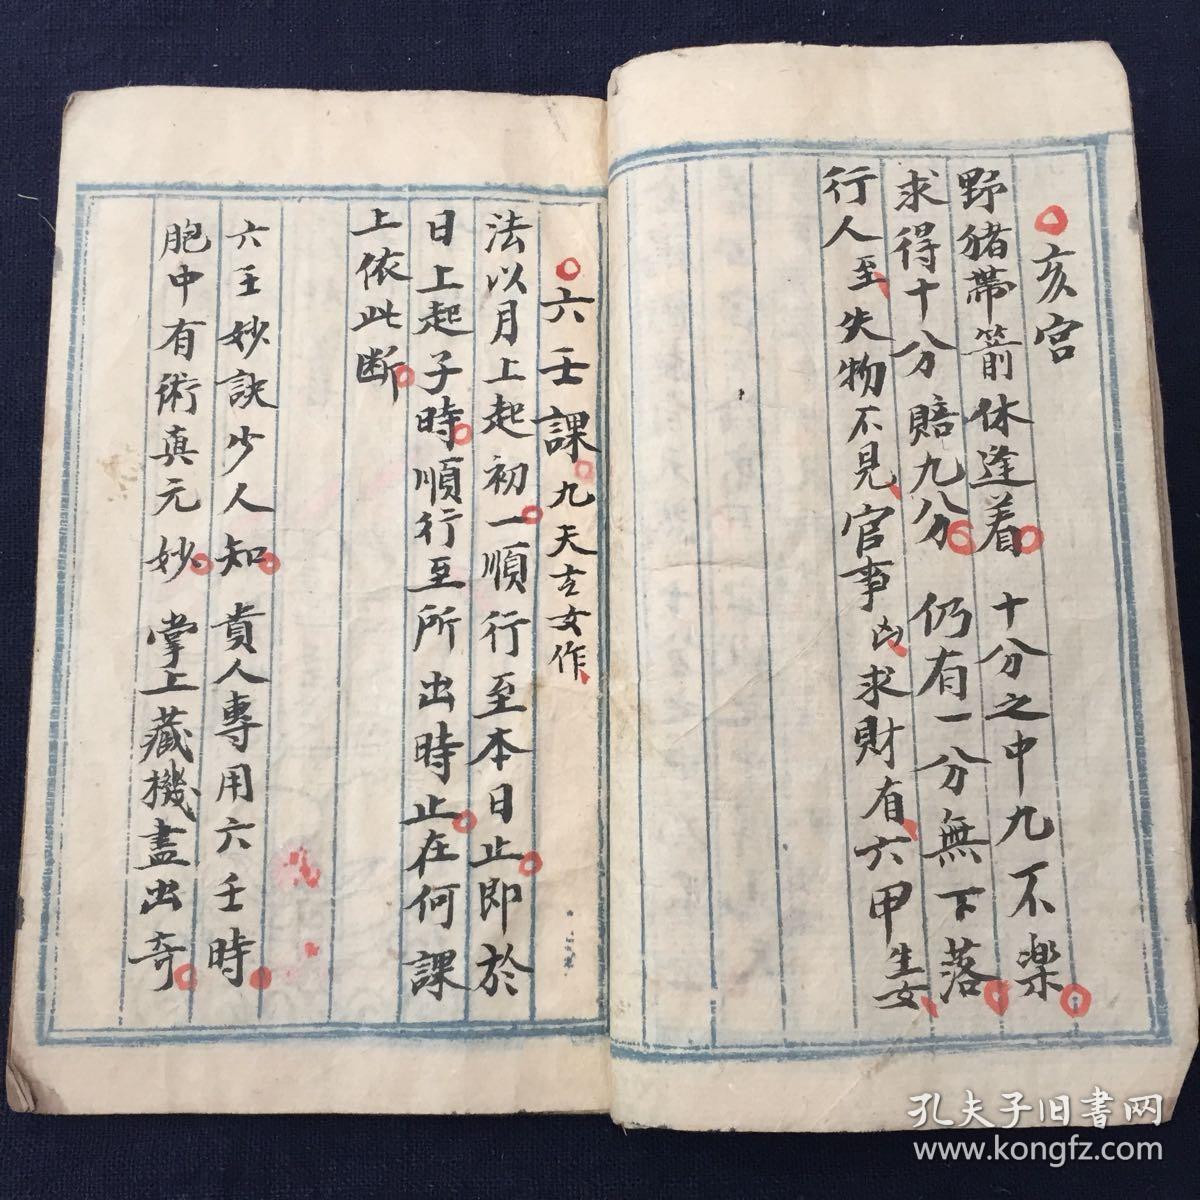 亥宮
野猪帶箭休逢着 十分之中九不楽
求得十分賠九分 仍有一分無下落
行人至失物不見官事凶求財有六甲生女
六壬課 九天玄女作
法以月上起初一順行至本日止即於
日上起子時順行至所出時止在何課
上依此断
六壬妙訣少人知 貴人專用六壬時
胞中有術真元妙 掌上藏機盡出奇
孔夫子旧書网
www.kongfz.com